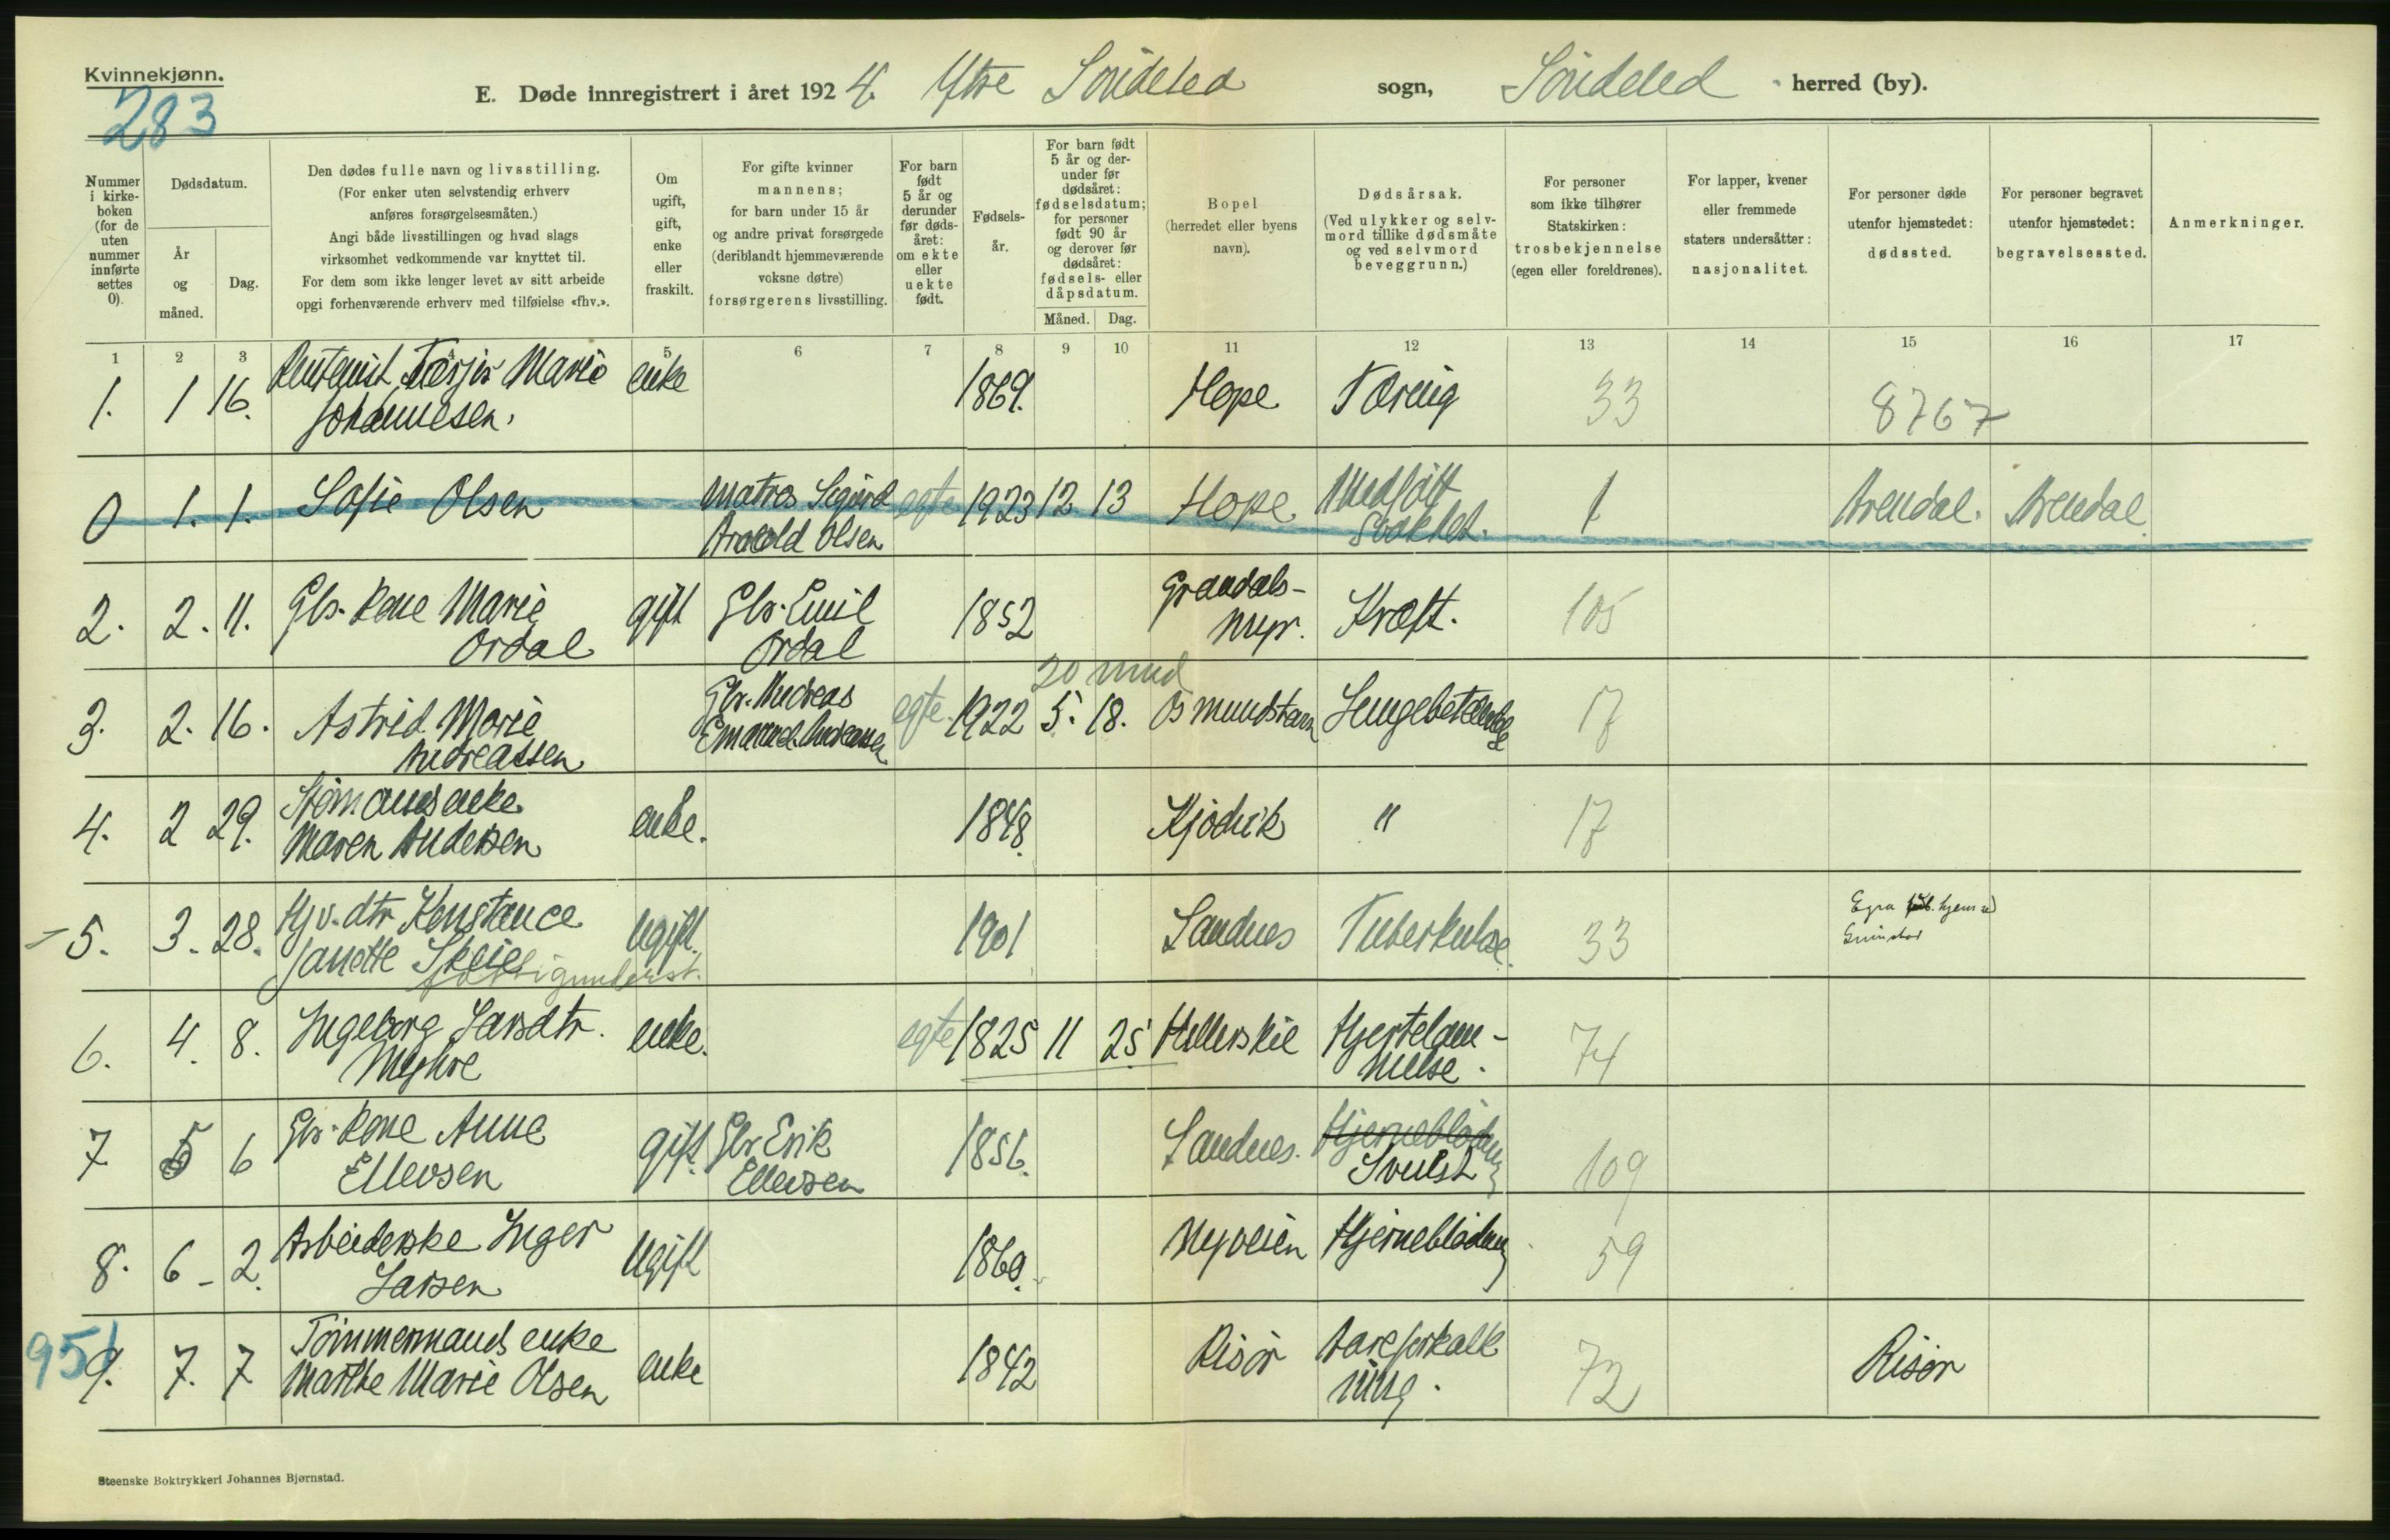 Kvinnekjønn.
283
E. Døde innregistrert i året 1924. Ytre Søndeled sogn, Søndeled herred (by).
Nummer i kirke- boken (for de uten nummer innførte settes 0).
Dødsdatum.
År og måned.
Dag.
Den dødes fulle navn og livsstilling.
(For enker uten selvstendig erhverv
anføres forsørgelsesmåten.)
Angi både livsstillingen og hvad slags
virksomhet vedkommende var knyttet til.
For dem som ikke lenger levet av sitt arbeide
opgi forhenværende erhverv med tilføielse «fhv.».
Om ugift, gift, enke eller fraskilt.
For gifte kvinner
mannens;
for barn under 15 år
og andre privat forsørgede
(deriblandt hjemmeværende
voksne døtre)
forsørgerens livsstilling.
For barn født 5 år og derunder før døds- året: om ekte eller uekte født.
Fødsels- år.
For barn født 5 år og der- under før dødsåret: fødselsdatum; for personer født 90 år og derover før dødsåret: fødsels- eller dåpsdatum.
Måned. Dag.
Bopel
(herredet eller byens
navn).
Dødsårsak.
(Ved ulykker og selv-
mord tillike dødsmåte
og ved selvmord
beveggrunn.)
For personer
som ikke tilhører
Statskirken:
trosbekjennelse
(egen eller foreldrenes).
For lapper, kvener
eller fremmede
staters undersåtter:
nasjonalitet.
For personer døde
utenfor hjemstedet:
dødssted.
For personer begravet
utenfor hjemstedet:
begravelsessted.
Anmerkninger.
1 2 3 4 5 6 7 8 9 10 11 12 13 14 15 16 17
1. 1 16. Marie enke 1869. Hope Tæring 33 8767
Johannesen.
0 1. 1. Sofie Olsen Matros Sigurd egte 1923 12 13 Hope Medfött 1 Arendal. Arendal.
Olsen Svakhet.
2. 2. 11. Gbr. kone Marie gift Gbr. Emil 1852 Kræft. 105
Ordal Ordal myr.
20 mnd
3. 2. 16. Astrid Marie Gbr. Andreas egte 1922 5. 18. Osmundstarn 17
Andreassen Andreassen
4. 2 29. Sjømands enke enke. 1848. " 17
Maren Andersen
5. 3. 28. Hjv. dtr Konstance Ugift. 1901 Sandnes Tuberkulose. 33
Janette Skeie fattigunderst.
6. 4. 8. Ingeborg Larsdtr. enke. egte 1825 11 25 Hjertelam- 74
Myhre melse.
7 5 6 Gbr. kone Anne gift. Gbr Erik 1856. Sandnes. Hjerneblødning 109
Ellevsen Ellevsen Svulst
8. 6 - 2. Arbeiderske Inger Ugift 1860. Nyveien Hjerneblødning 59
Larsen
951
9. 7. 7 Tömmermands enke enke 1842 Risør Aareforkalk 72 Risør
Marthe Marie Olsen ning.
Steenske Boktrykkeri Johannes Bjørnstad.